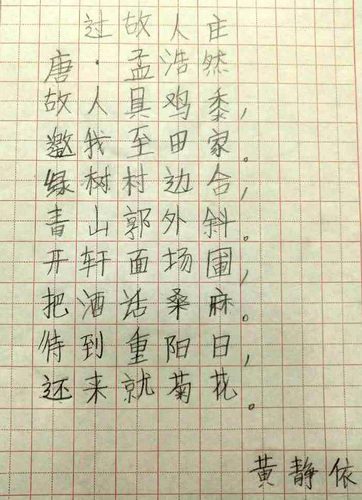 过故人庄
唐·孟浩然
故人具鸡黍，
邀我至田家。
缘树村边合，
青山郭外斜。
开轩面场圃，
把酒话桑麻。
待到重阳日，
还来就菊花。
黄静依